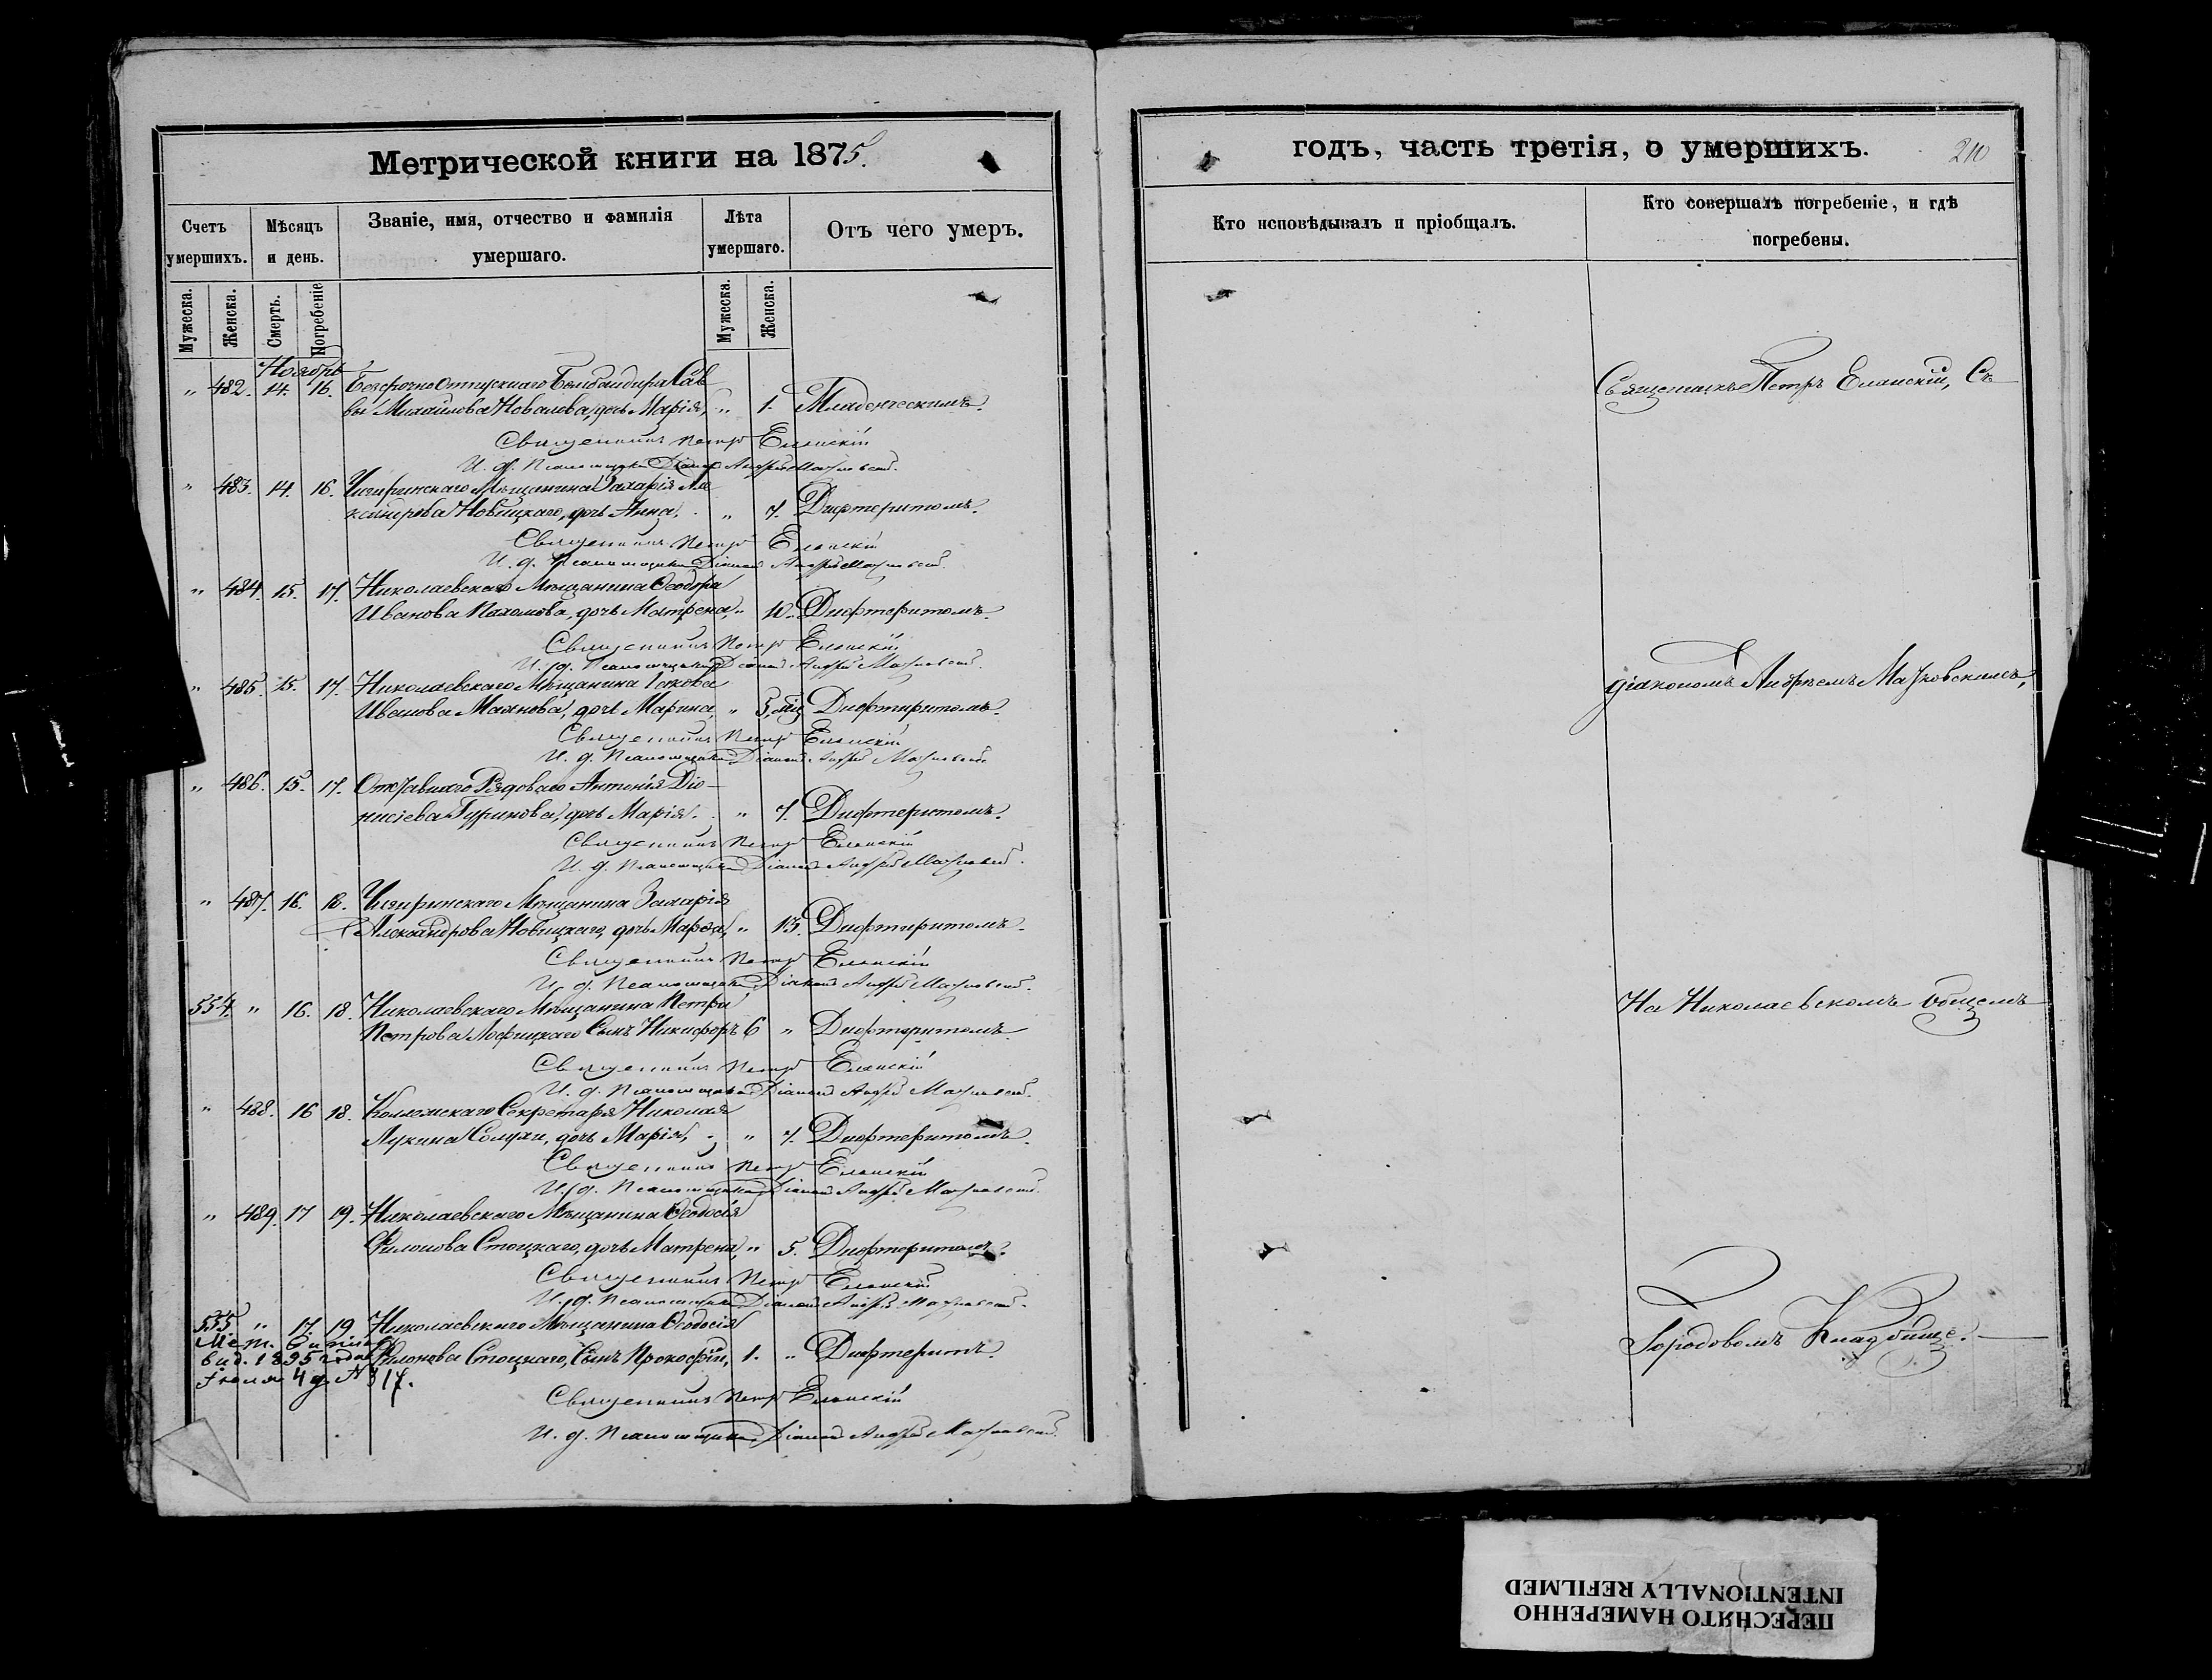 Метрической книги на 1875.
Счетъ умершихъ.
Мѣсяцъ и день.
Званіе, имя, отчество и фамилія умершаго.
Лѣта умершаго.
Отъ чего умеръ.
Мужеска.
Женска.
Смерть.
Погребеніе
Мужеска.
Женска.
Ноябрь
" 482. 14. 16. Безсрочно Отпускнаго Бомбандира Сав
вы Михайлова Новалова, дочь Марія, " 1. Младенческимъ.
Священникъ Петръ Еланскій
И. д. Псаломщика Діаконъ Андрей
" 483. 14. 16. Чигиринскаго Мѣщанина Захарія Але
ксандрова Новицкаго, дочь Анна. " 7. Дифтеритомъ.
Священникъ Петръ Еланскій
И. д. Псаломщика Діаконъ Андрей
" 484. 15. 17. Николаевскаго Мѣщанина Ѳеодора
Иванова Пахомова, дочь Матрена, " 10. Дифтеритомъ.
Священникъ Петръ Еланскій
И. д. Псаломщика Діаконъ Андрей
" 485. 15. 17. Николаевскаго Мѣщанина Іакова
Иванова Маянова, дочь Марина, " 5, мц Дифтиритомъ.
Священникъ Петръ Еланскій
И. д. Псаломщика Діаконъ Андрей
" 486. 15. 17. Отставнаго Рядоваго Антонія Діо-
нисіева Гуринова, дочь Марія. " 7. Дифтеритомъ.
Священникъ Петръ Еланскій
И. д. Псаломщика Діаконъ Андрей
" 487. 16. 18. Чигиринскаго Мѣщанина Захарія
Александрова Новицкаго, дочь Марѳа, " 13. Дифтиритомъ.
Священникъ Петръ Еланскій
И. д. Псаломщика Діаконъ Андрей
554. " 16. 18. Николаевскаго Мѣщанина Петра
Петрова Лофицкаго Сынъ Никифоръ 6 " Дифтеритомъ.
Священникъ Петръ Еланскій
И. д. Псаломщика Діаконъ Андрей
" 488. 16 18. Коллежскаго Секретаря Николая
Лукина Солухи, дочь Марія, " 7. Дифтеритомъ.
Священникъ Петръ Еланскій
И. д. Псаломщика Діаконъ Андрей
" 489. 17 19. Николаевскаго Мѣщанина Ѳеодосія
Филонова Стоцкаго, дочь Матрена, " 5. Дифтеритомъ.
Священникъ Петръ Еланскій
И. д. Псаломщика Діаконъ Андрей
555 " 17. 19. Николаевскаго Мѣщанина Ѳеодосія
Филонова Стоцкаго, Сынъ Прокофій, 1. " Дифтеритъ.
Мет.
выд. 1895 года
Іюля 4 д. № 317.
Священникъ Петръ Еланскій
И. д. Псаломщика Діаконъ Андрей
годъ, часть третія, о умершихъ.
210
Кто исповѣдывалъ и пріобщалъ.
Кто совершалъ погребеніе, и гдѣ погребены.
Священникъ Петръ Еланскій, Съ
діакономъ Андреемъ
На Николаевскомъ общемъ
Городовомъ Кладбище.
ПЕРЕСНЯТО НАМЕРЕННО
INTENTIONALLY REFILMED